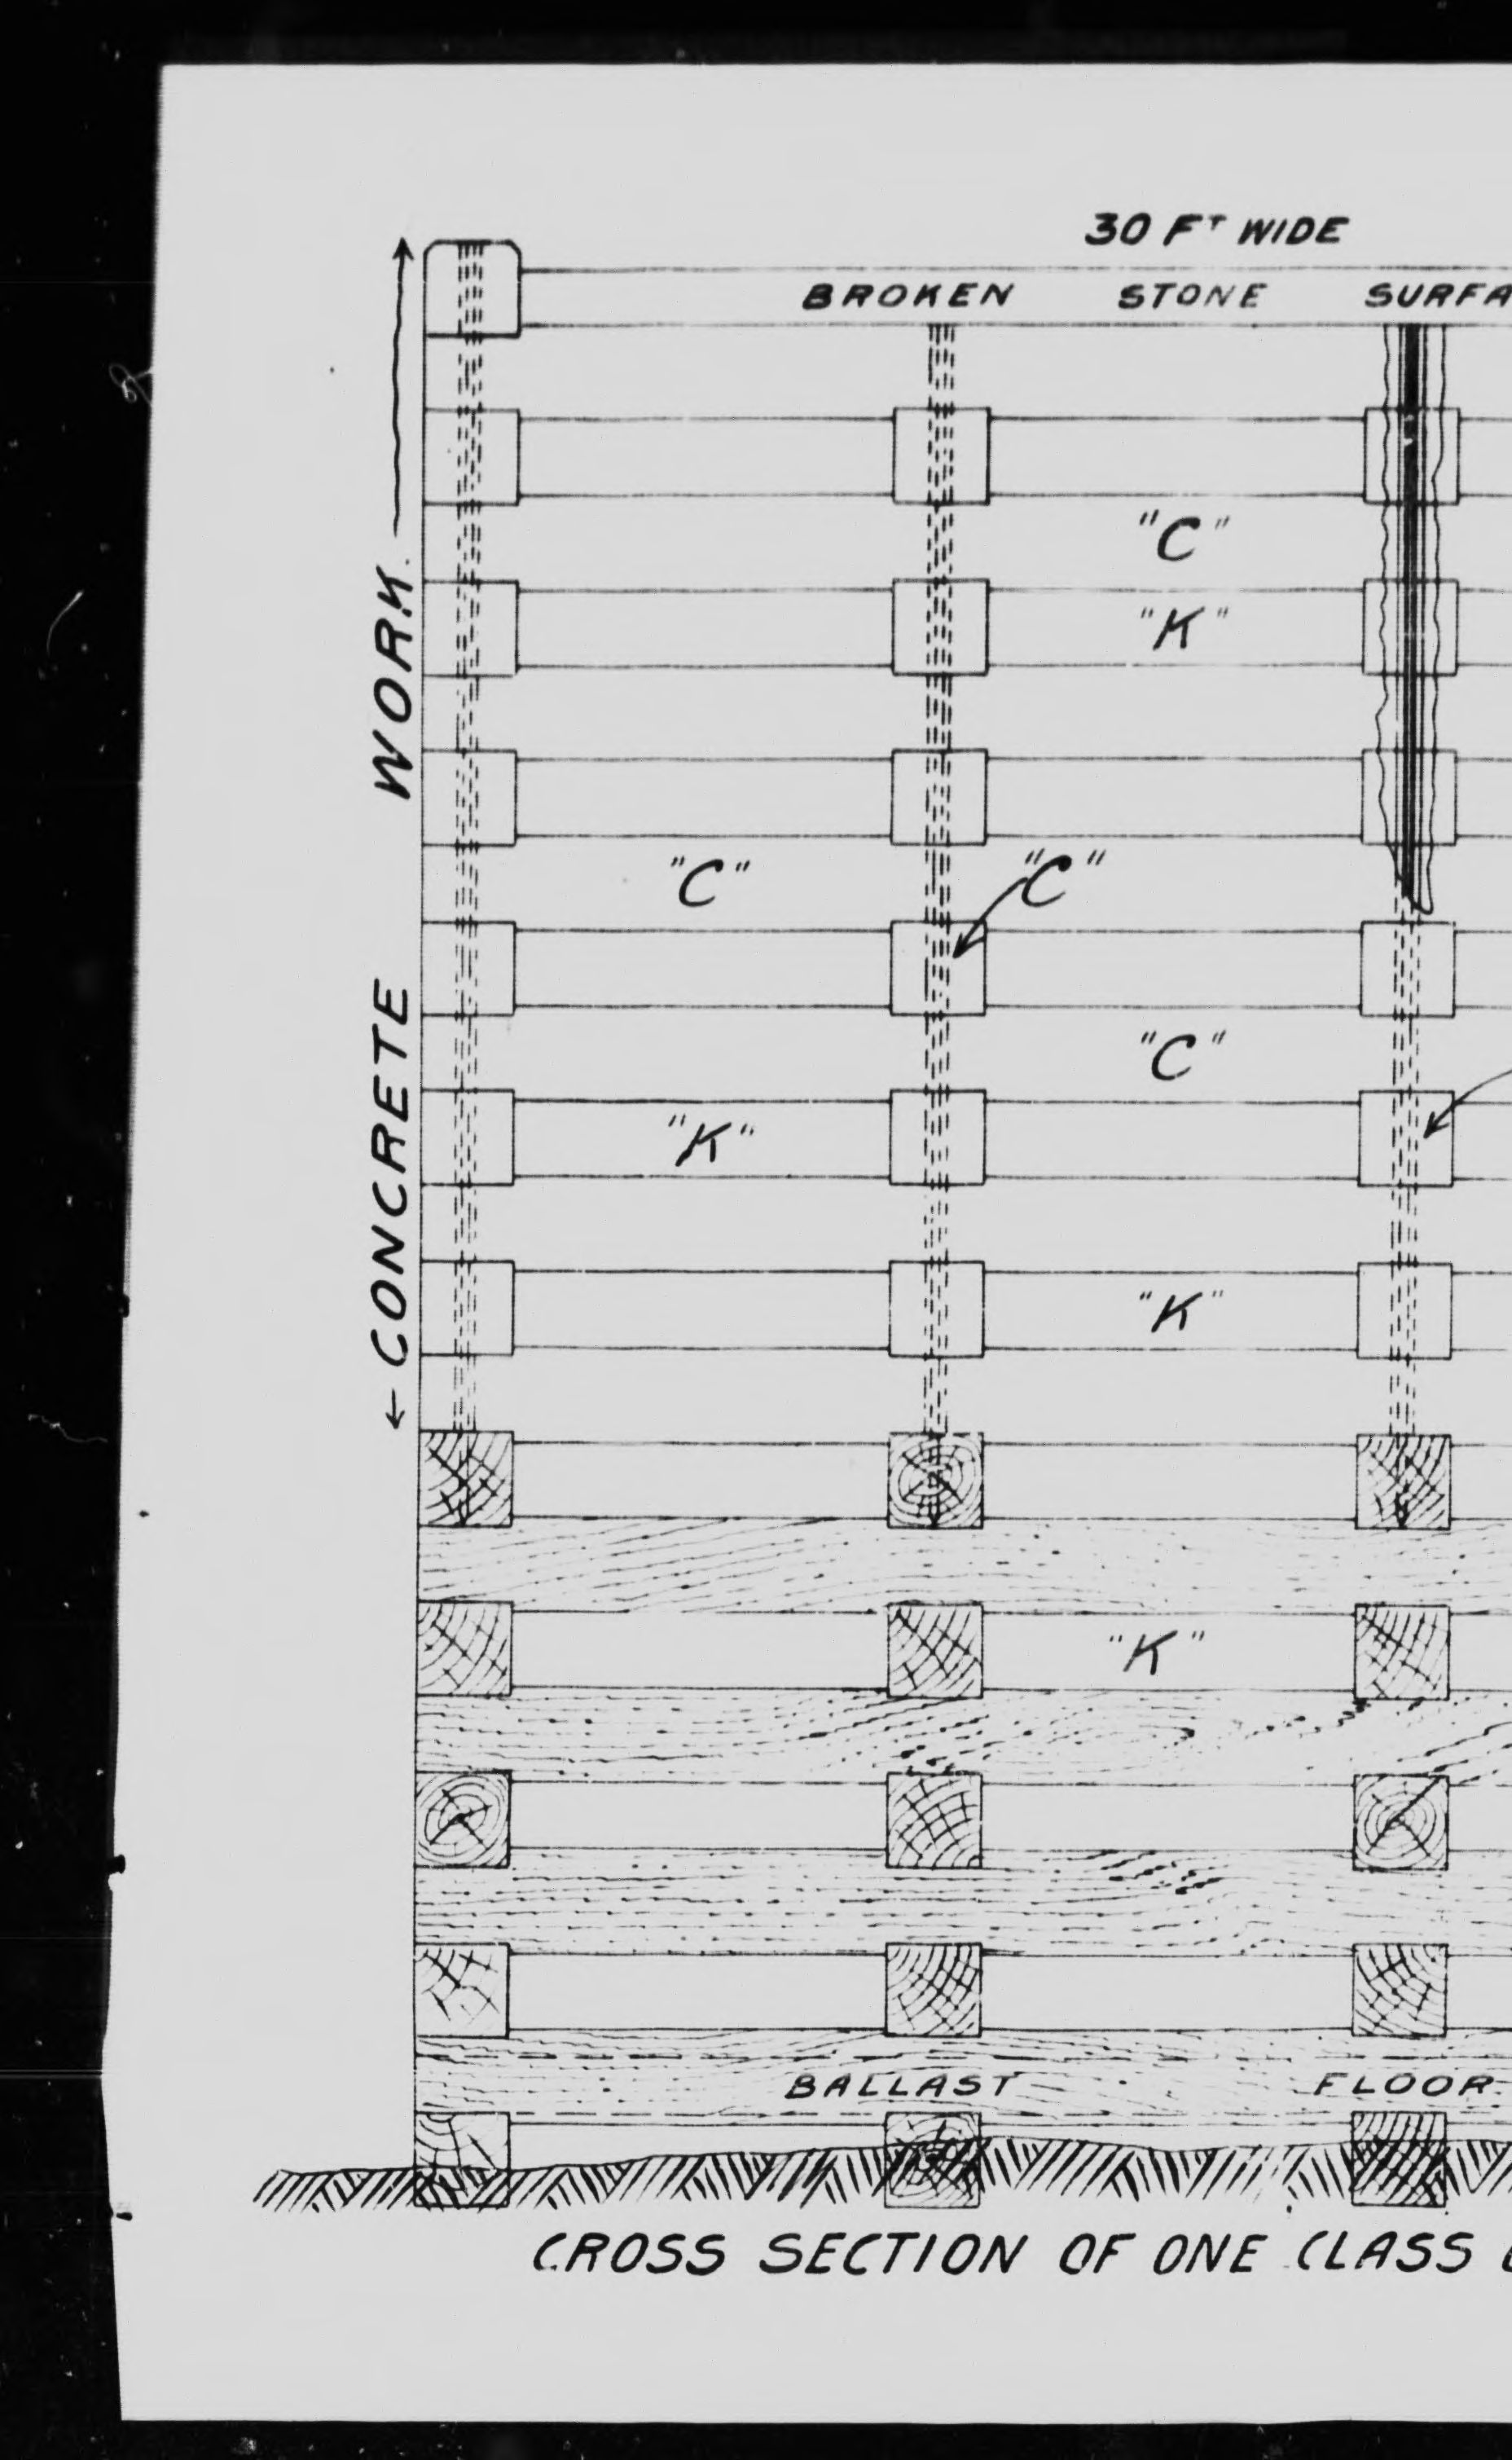 30 FT WIDE
BROKEN STONE SURFA
"C"
"K"
"C" "C"
"C"
"K"
"K"
"K"
CONCRETE WORK
BALLAST FLOOR
CROSS SECTION OF ONE CLASS